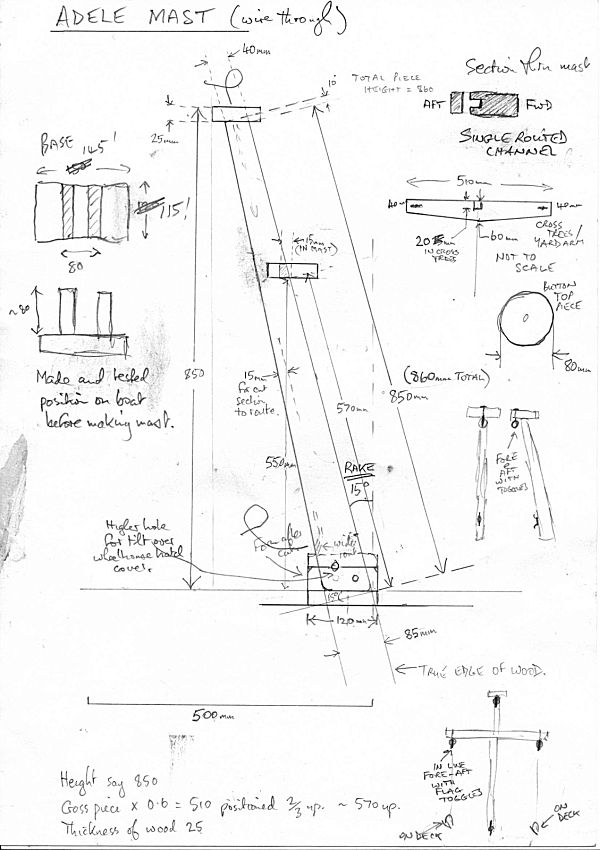 ADELE MAST (wire through)
40mm
10°
TOTAL PIECE
HEIGHT = 860
25mm
Section thru mast
AFT
FWD
SINGLE ROUTED
CHANNEL
BASE 145!
115!
80
510mm
40mm
40mm
20
IN CROSS
TREES
60mm
CROSS
TREES/
YARDARM
NOT TO
SCALE
15mm
(IN MAST)
BUTTON
TOP
PIECE
80mm
~80
Made and tested
position on boat
before making mast.
850
15mm
for cut
section
to route.
570mm
(860mm TOTAL)
850mm
550mm
RAKE
15°
FORE
&
AFT
WITH
TOGGLES
Higher hole
for tilt over
wheelhouse hatch
cover.
wider
15°
120mm
85mm
TRUE EDGE OF WOOD.
500mm
IN LINE
FORE-AFT
WITH
FLAG
TOGGLES
ON DECK
ON
DECK
Height say 850
Cross piece x 0.6 = 510 positioned 2/3 up. ~ 570 up.
Thickness of wood 25